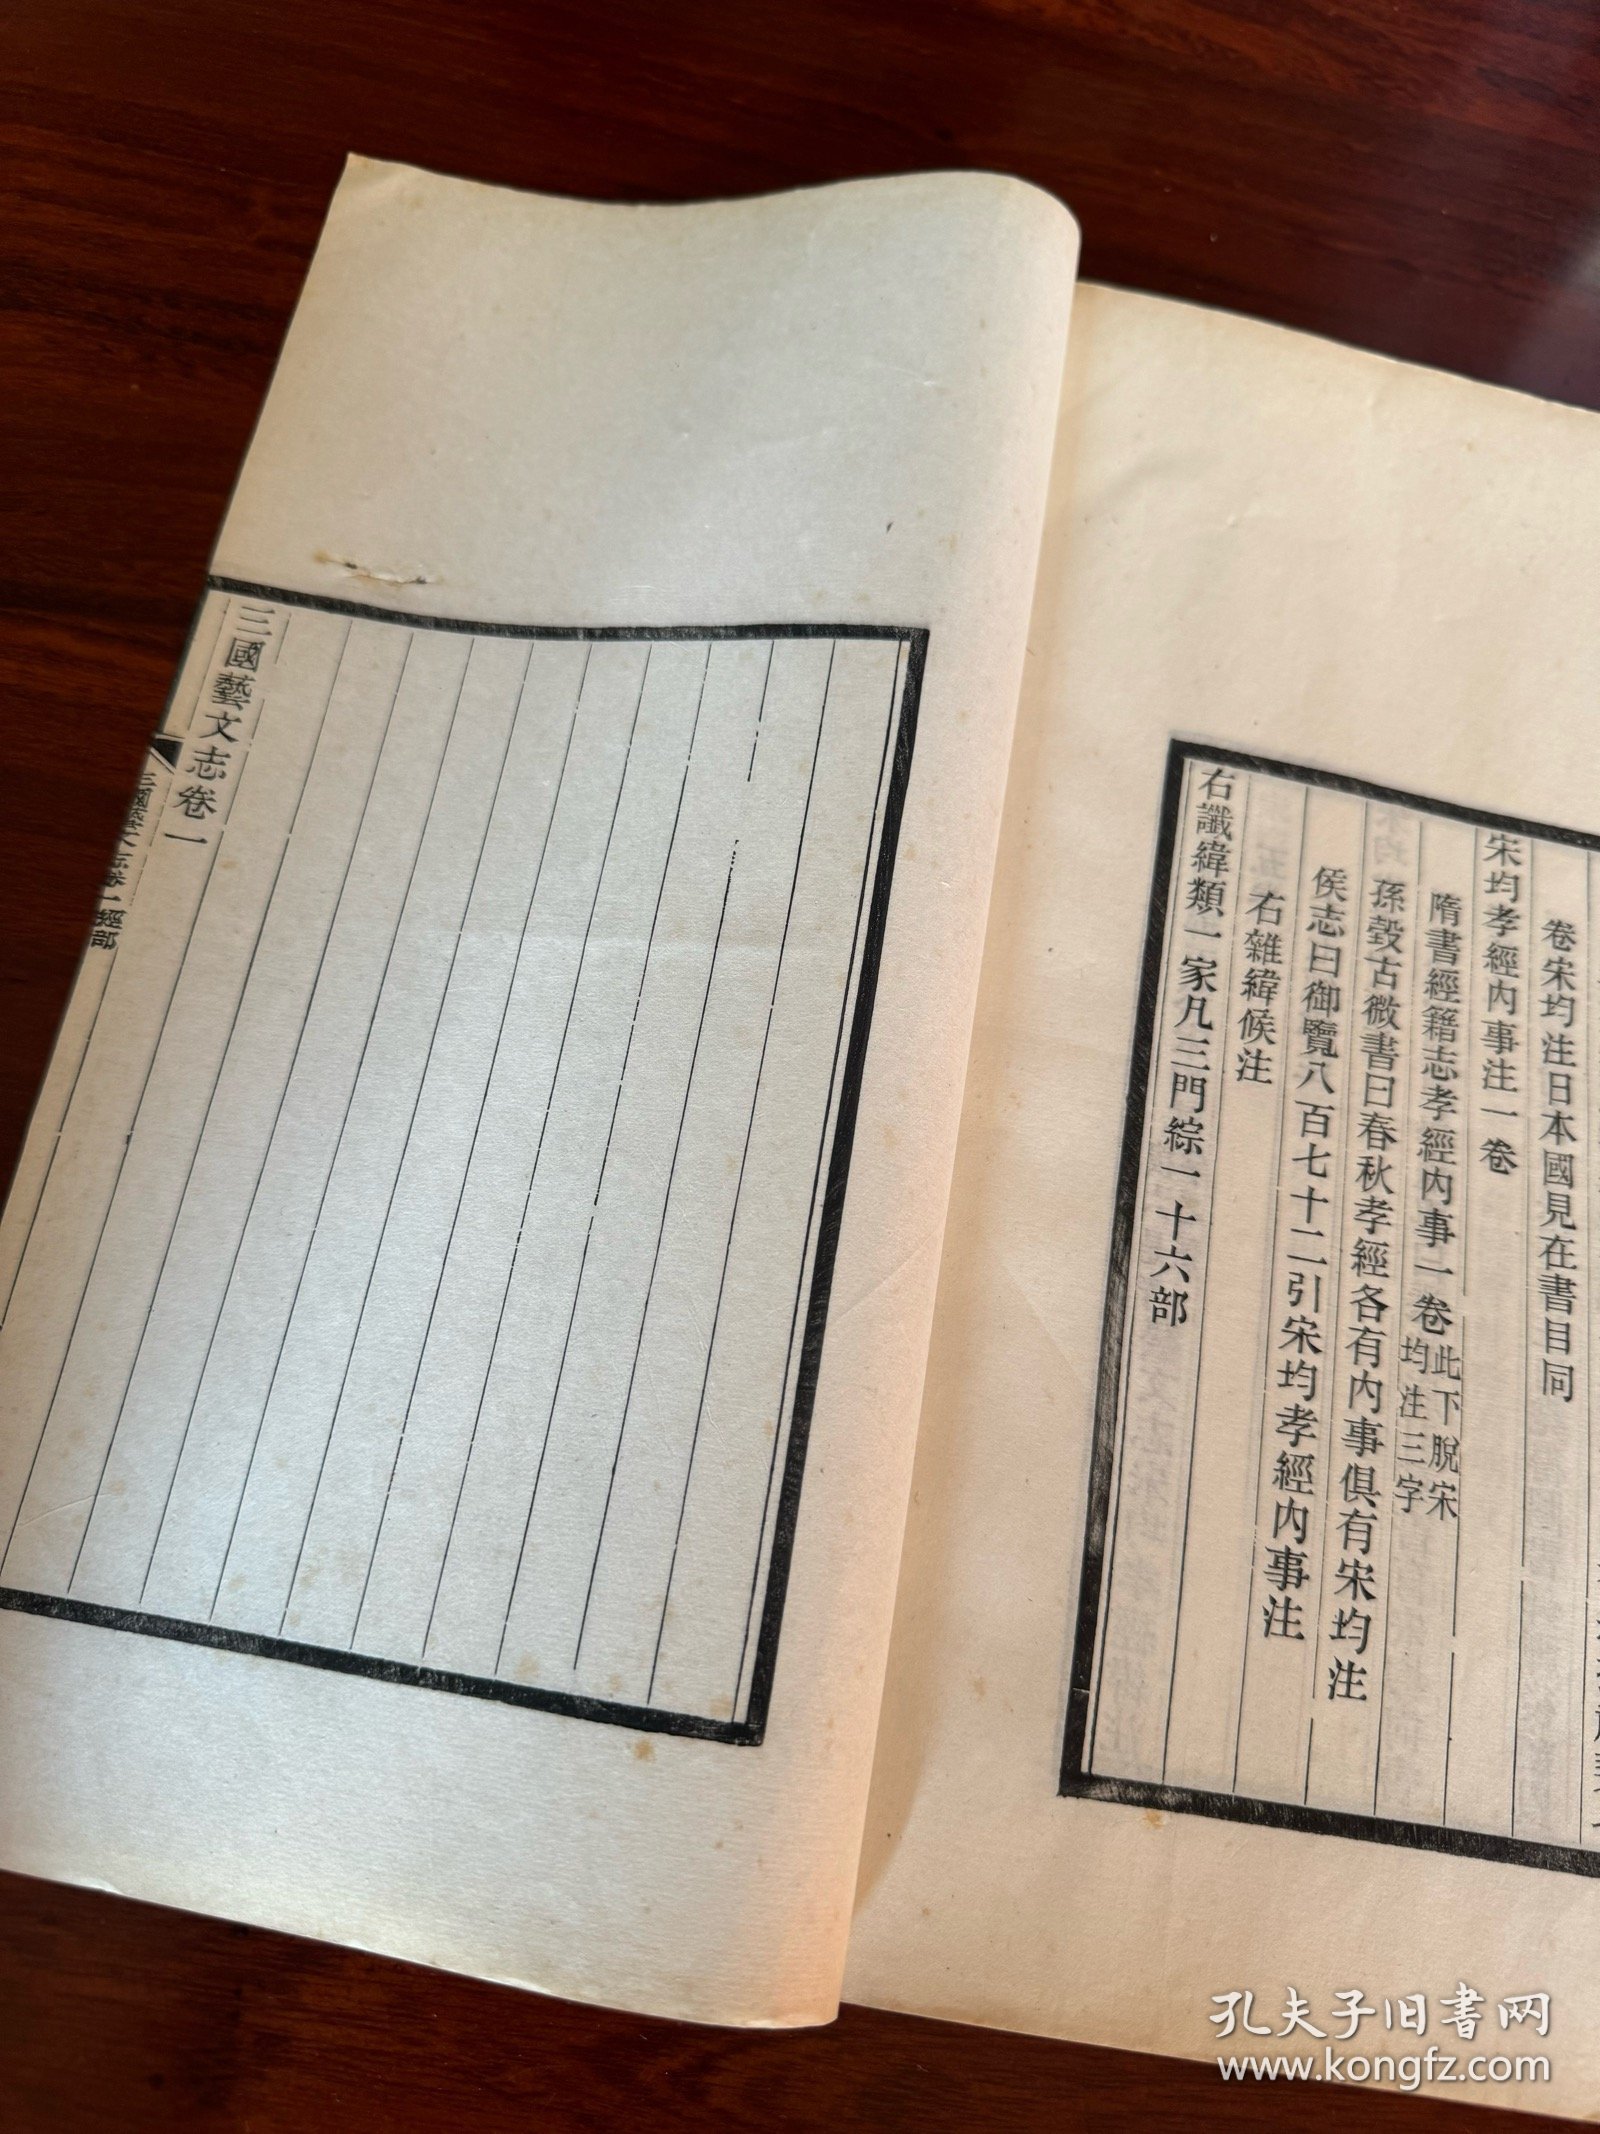 卷宋均注日本國見在書目同
宋均孝經內事注一卷
隋書經籍志孝經內事一卷此下脫宋均注三字
孫瑴古微書曰春秋孝經各有內事俱有宋均注
侯志曰御覽八百七十二引宋均孝經內事注
右雜緯候注
右讖緯類一家凡三門綜一十六部
三國藝文志卷一
三國藝文志卷一經部
孔夫子旧书网
www.kongfz.com